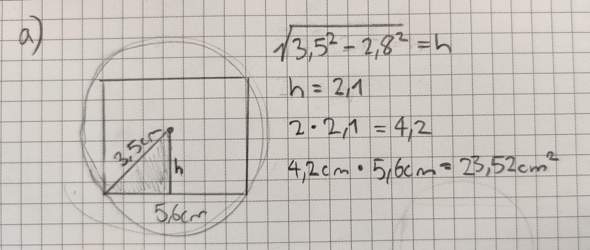 a)
√3,5² - 2,8² = h
h = 2,1
2 · 2,1 = 4,2
4,2cm · 5,6cm = 23,52cm²
3,5cm
h
5,6cm